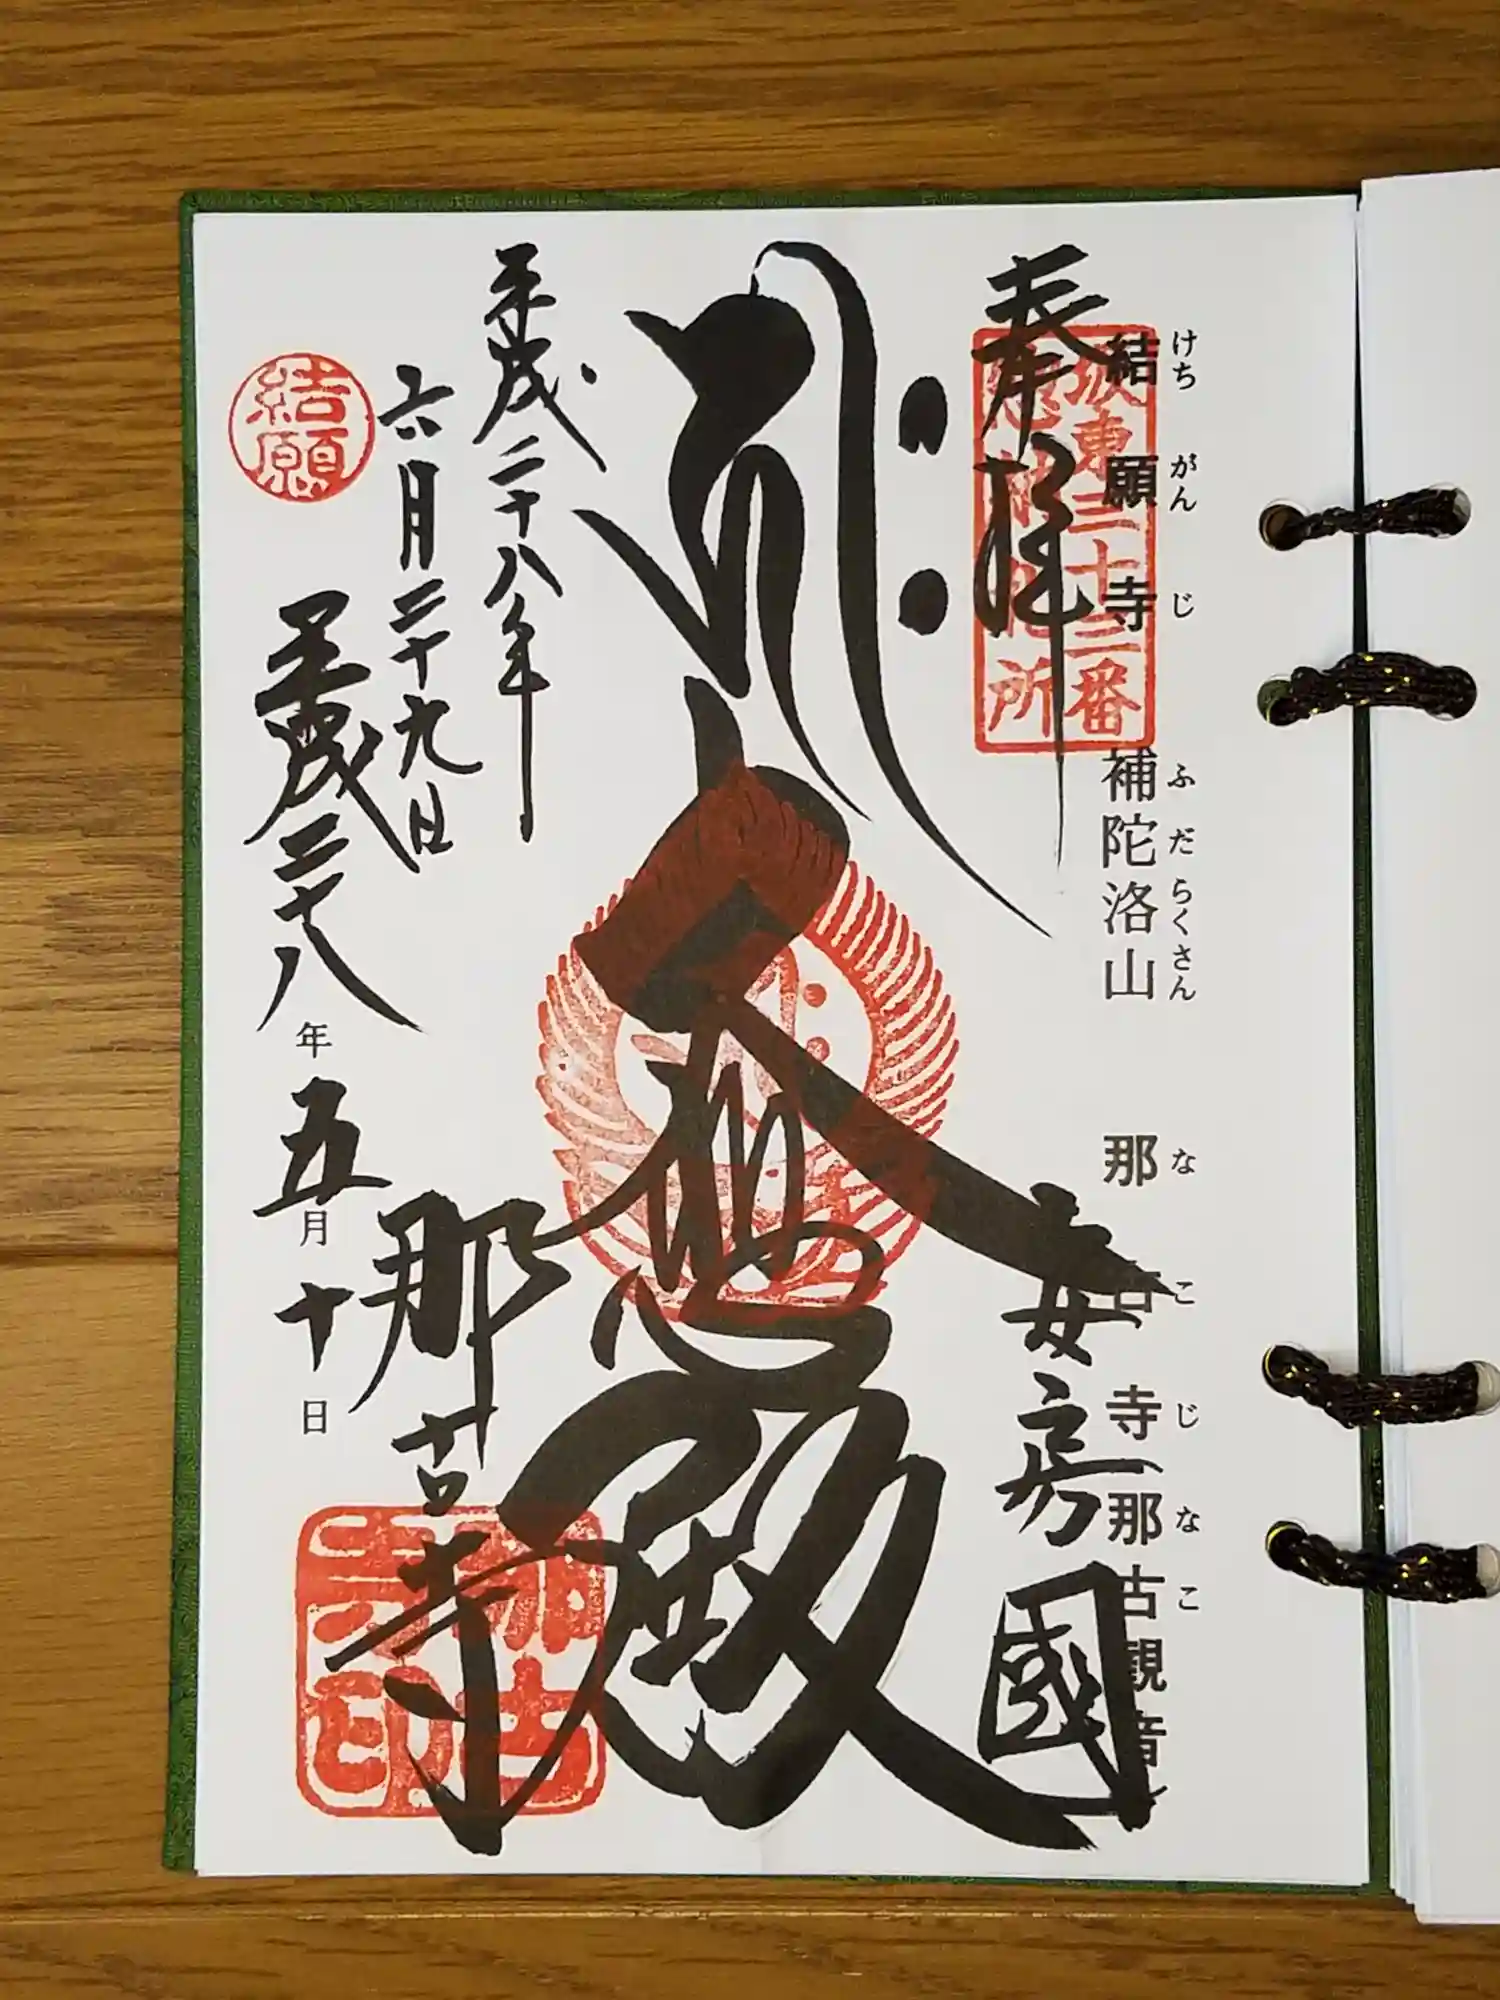 けちがんじ
結願寺
ふだらくさん
補陀洛山
なこじ
那古寺
なこ
那古観音
奉拝
坂東三十三番
所
安房國
大悲殿
平成二十八年
六月二十九日
那古寺
結願
平成二十八年五月十日
那古寺印